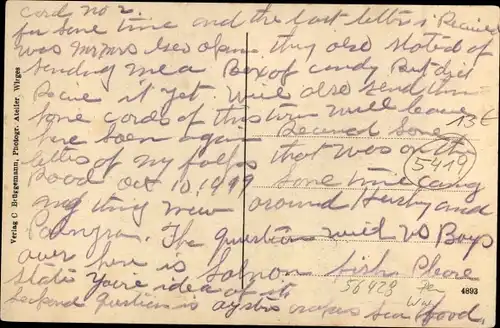 Cord no 2.
for some time and the last letter i Recived
was Mr Mrs they also stated of
sending me a Box of candy But dit
Recive it yet Will also send them
some cords of this town will leave
here soon again Recived some
letters of my folks that was on the
Rood Oct 10, 1919 some time
any thing new around and
The question with us Boys
over here is Solmon fish Please
state You're idea of it
Seckend question is oysters sea food.
13 E
5419
56428
4893
Verlag C Brüggemann, Photogr. Atelier, Wirges